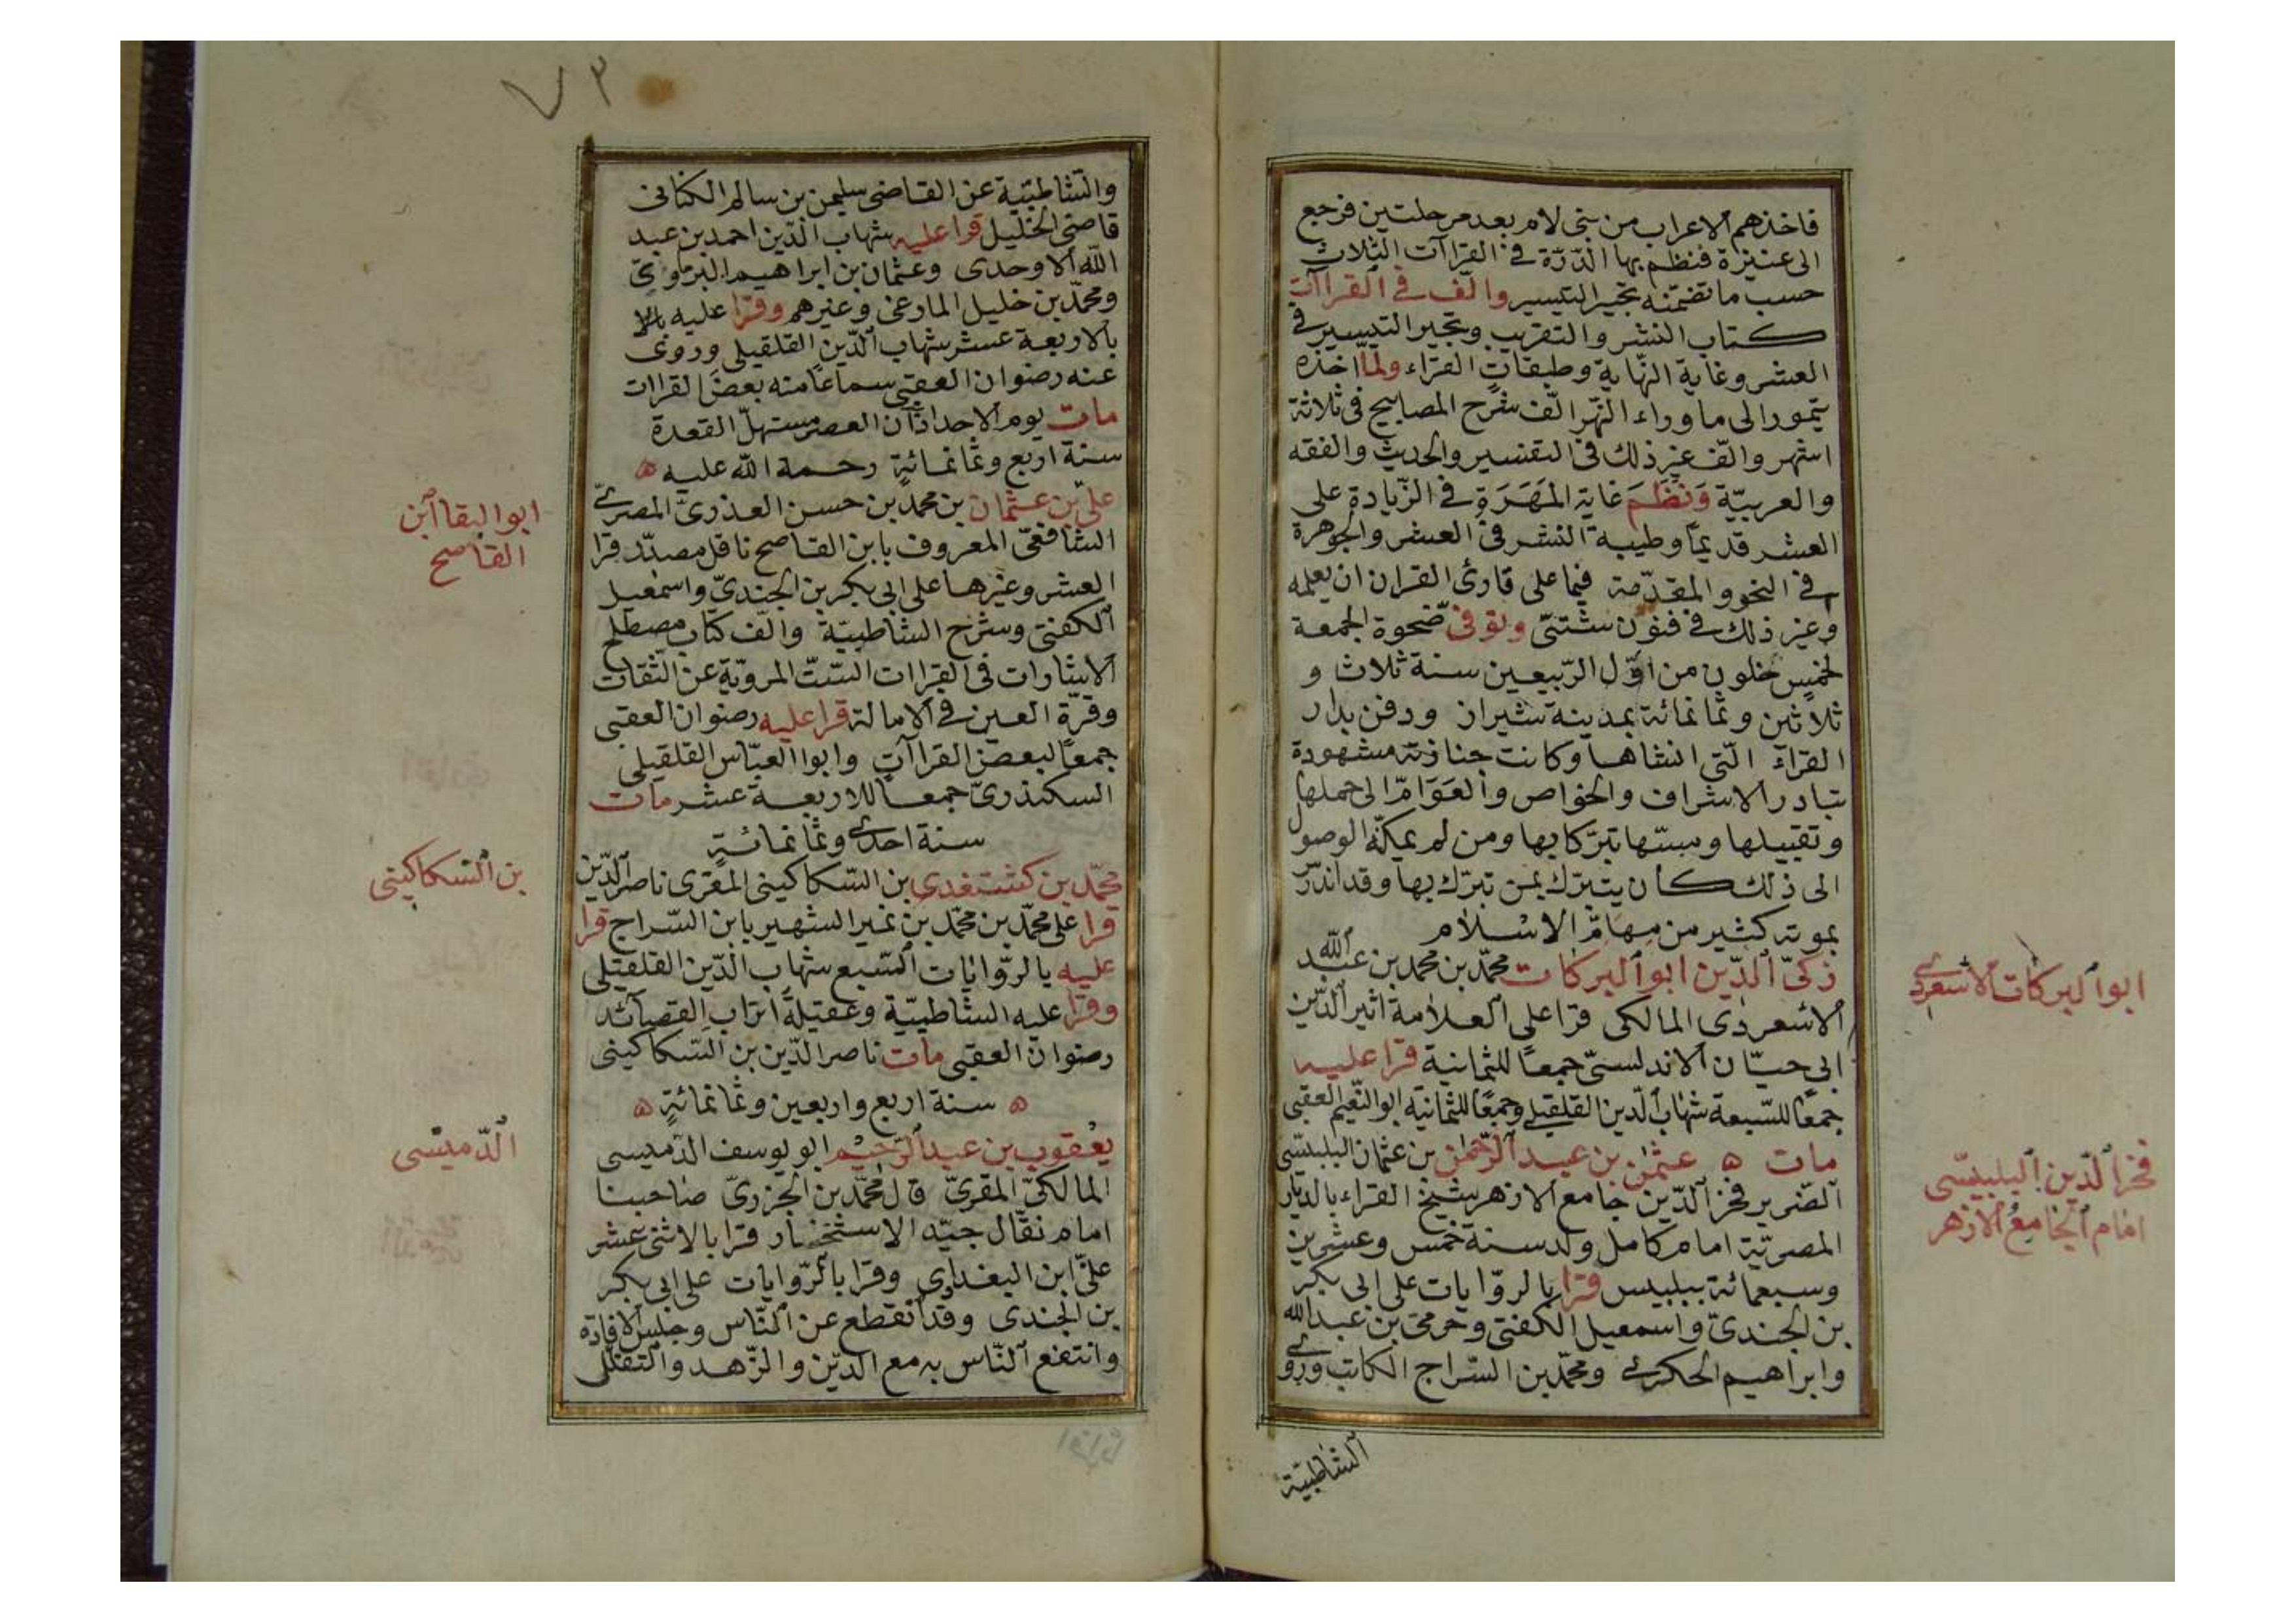 فاخذهم الاعراب من بنى لام بعد مرحلتين فرجع
الى عنيزة فنظم بها الدّرّة فى القراآت الثلاث
حسب ما تضمّنه تحبير التيسير والّف فى القراآت
كتاب النشر والتقريب وتحبير التيسير فى
العشر وغاية النّهاية وطبقات القرّاء ولمّا اخذه
تيمور الى ما وراء النّهر الّف شرح المصابيح فى ثلاثة
اشهر والّف غير ذلك فى التفسير والحديث والفقه
والعربيّة وَنَظَمَ غاية المَهَرَة فى الزّيادة على
العشر قديمًا وطيبة النشر فى العشر والجوهرة
فى النحو والمقدّمة فيما على قارئ القران ان يعلمه
وغير ذلك فى فنون شتّى وتوفى ضحوة الجمعة
لخمس خلون من اوّل الرّبيعين سنة ثلاث و
ثلاثين وثمانمائة بمدينة شيراز ودفن بدار
القرآء الّتى انشاها وكانت جنازته مشهودة
تبادر الاشراف والخواص والعَوَامّ الى حملها
وتقبيلها ومسّها تبرّكا بها ومن لم يمكنّه الوصول
الى ذلك كان يتبرّك بمن تبرّك بها وقد اندرّ
بموته كثير من مهامّ الاسْلام
ذكىّ الدّين ابو البركات محمّد بن محمد بن عبد الله
الاسْعردى المالكى قرا على العلامة اثير الدّين
ابى حيّان الاندلسىّ جمعًا للثمانية قرا عليه
جمعًا للسّبعة شهاب الدّين القلقيلى وجمعًا للثمانية ابو النّعيم العقبى
مات ه عثمٰن بن عبد الرّحمٰن بن عثمان البلبيسّى
الضّرير فخر الدّين جامع الازهر شيخ القراء بالديّار
المصريّة امام كامل ولد سنة خمس وعشرين
وسبعمائة ببلبيس قرا بالروّايات على ابى بكر
بن الجندىّ واسمعيل الكفتى وحرمى بن عبد الله
وابراهيم الحكرى ومحمّد بن السّراج الكاتب وروى
الشاطبيّة
ابو البركات الاسْعردى
فخر الدّين البلبيسّى
امام الجامع الازهر
٧٣
والشاطبيّة عن القاضى سليمٰن بن سالم الكنانى
قاضى الخليل قرا عليه شهاب الدّين احمد بن عبد
الله الاوحدى وعثمان بن ابراهيم البرماوى
ومحمّد بن خليل المارعى وغيرهم وقرا عليه بالا
بالاربعة عشر شهاب الدّين القلقيلى وروى
عنه رضوان العقبى سماعًا منه بعض القراات
مات يوم الاحد اذان العصر مستهلّ القعدة
سنة اربع وثمانمائةٍ رحمة الله عليه ه
علىّ بن عثمان بن محمّد بن حسن العذرىّ المصرى
الشافعىّ المعروف بابن القاصح ناقل مصدّر قرا
العشر وغيرها على ابى بكر بن الجندىّ واسمعيل
الكفتى وشرح الشاطبيّة والّف كتاب مصطلح
الاشارات فى القراات السّتّ المرويّة عن الثقات
وقرّة العين فى الامالة قرا عليه رضوان العقبى
جمعًا لبعض القراآت وابوا العبّاس القلقيلى
السكندرىّ جمعًا للاربعة عشر مات
سنة احدى وثمانمائةٍ
محمّد بن كشتغدى بن السّكاكينى المقرى ناصر الدّين
قرا على محمّد بن محمّد بن نمير الشهير بابن السّراج قرا
عليه بالروّايات السّبع شهاب الدّين القلقيلى
وقرا عليه الشاطبيّة وعقيلة اتراب القصائد
رضوان العقبى مات ناصر الدّين بن السّكاكينى
ه سنة اربع واربعين وثمانمائةٍ ه
يعْقوب بن عبد الرّحيْم ابو يوسف الدّميسى
المالكىّ المقرىّ قال محمّد بن الجزرىّ صاحبنا
امام نقّال جيّد الاستحضار قرا بالاثنى عشر
علىّ ابن البغدادى وقرا بالرّوايات على ابى بكر
بن الجندى وقد انقطع عن النّاس وجلس لافادة
وانتفع النّاس به مع الديّن والزّهد والتقلّل
ابو البقا ابن
القاصح
بن السّكاكينى
الدّميسى